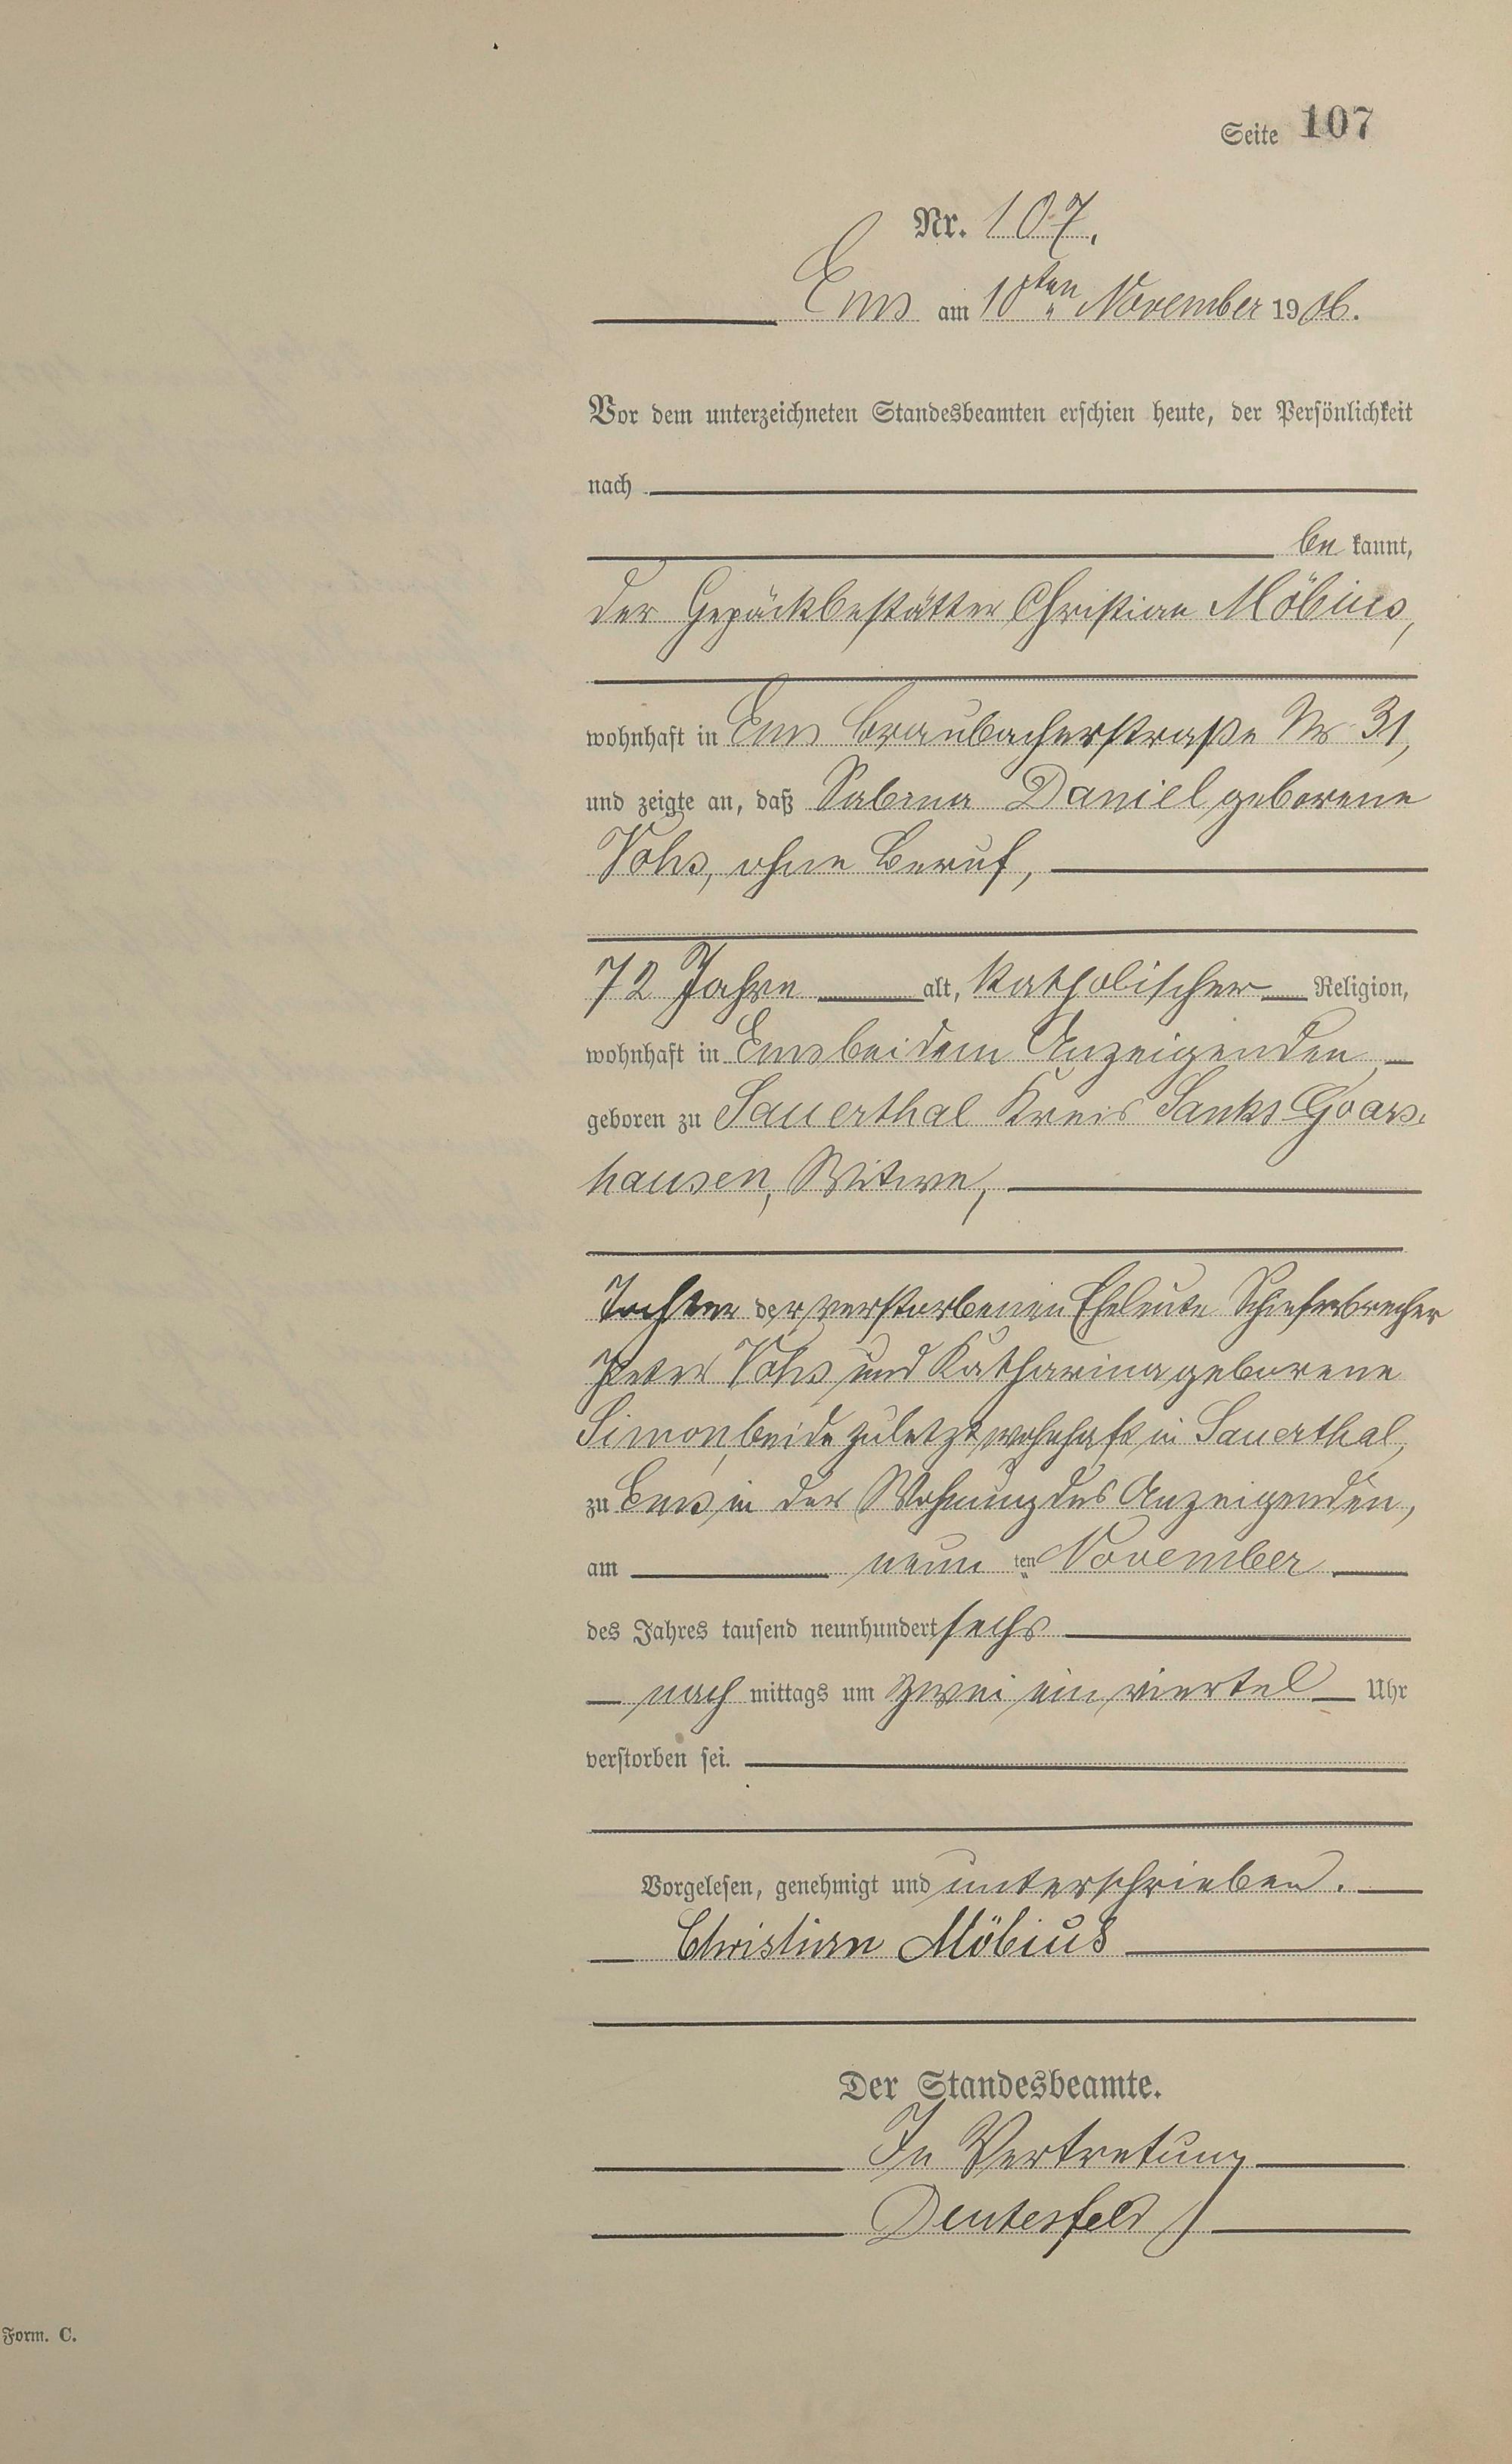 Seite 107
Nr. 107.
Ems am 10ten November 1906.
Vor dem unterzeichneten Standesbeamten erschien heute, der Persönlichkeit
nach
be kannt,
der Gepäckbestätter Christian Möbius,
wohnhaft in Ems Braubacherstraße Nr 31,
und zeigte an, daß Sabina Daniel geborene
Vohs, ohne Beruf,
72 Jahre alt, katholischer Religion,
wohnhaft in Ems bei dem Anzeigenden,
geboren zu Sauerthal Kreis Sankt Goars-
hausen, Witwe,
Tochter der verstorbenen Eheleute Schieferbrecher
Peter Vohs und Katharina geborene
Simon, beide zuletzt wohnhaft in Sauerthal,
zu Ems in der Wohnung des Anzeigenden,
am neun ten November
des Jahres tausend neunhundert sechs
nach mittags um zwei ein viertel Uhr
verstorben sei.
Vorgelesen, genehmigt und unterschrieben.
Christian Möbius
Der Standesbeamte.
In Vertretung
Deutesfeld
Form. C.